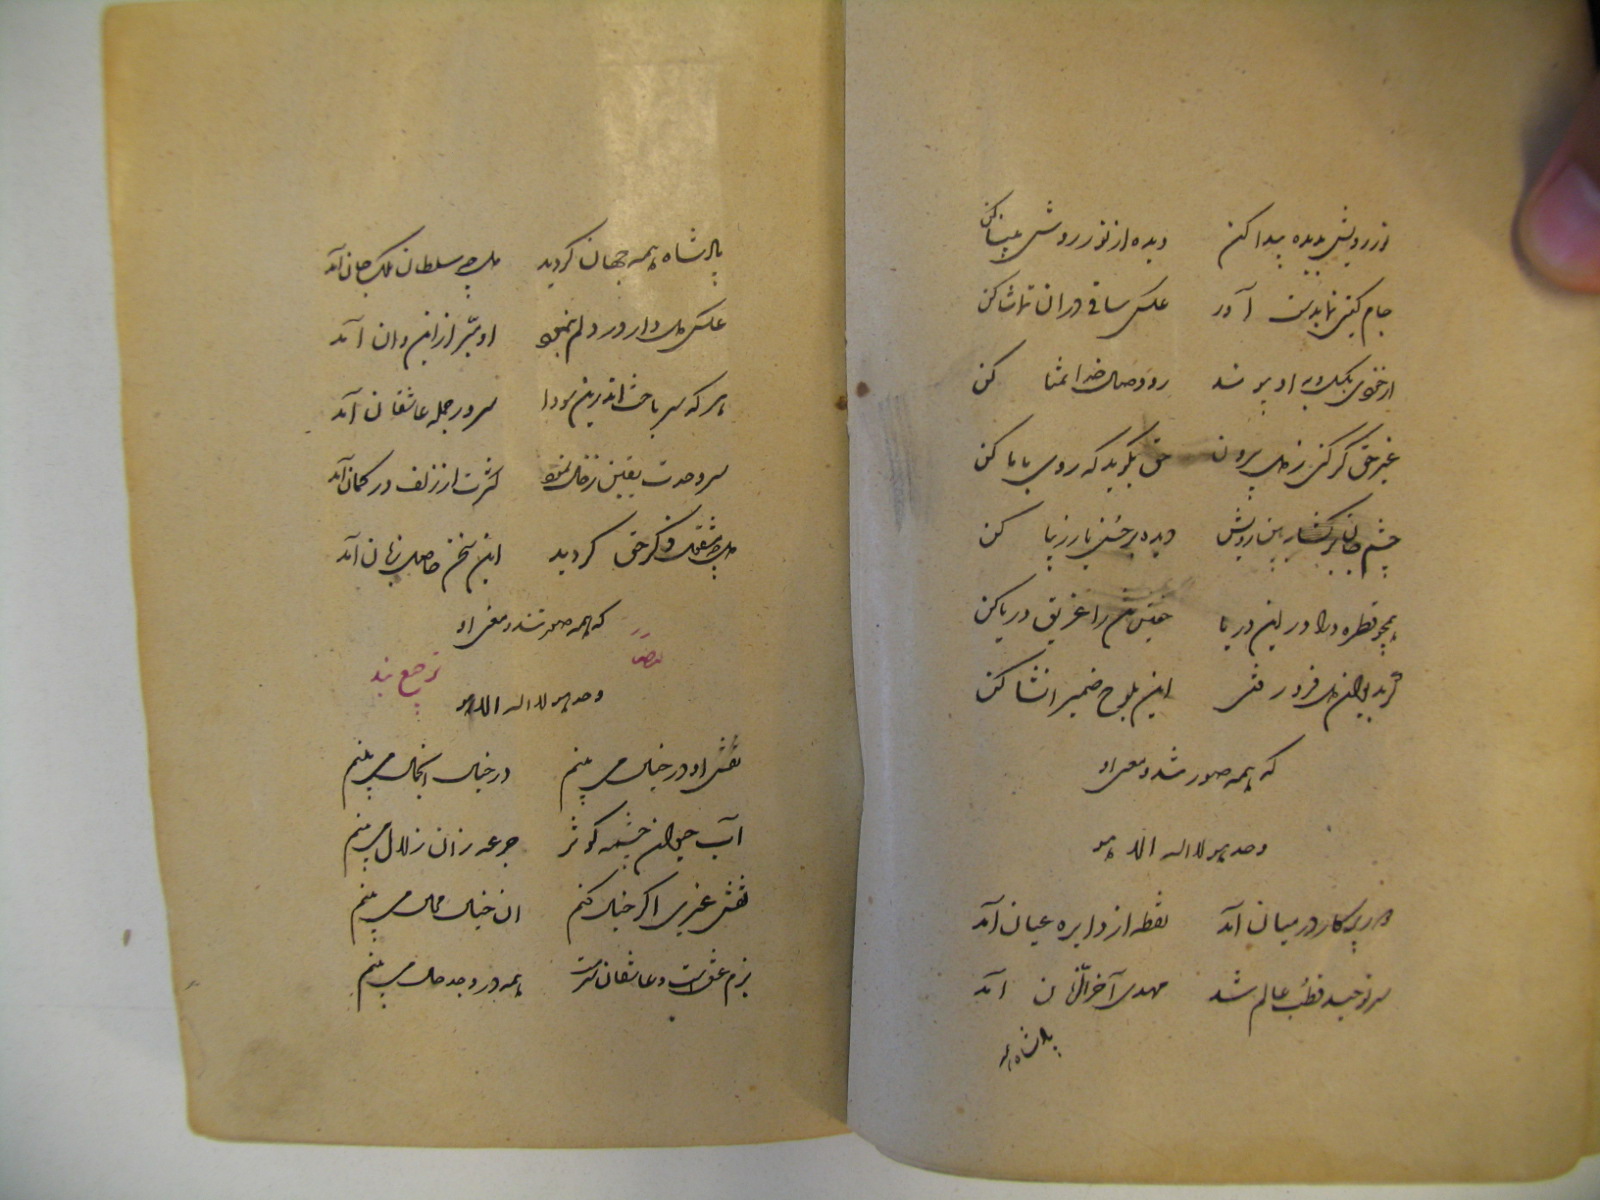 از رویش بدیده پیدا کن دیده از نور رویش بینا کن
جام گیتی نما بدست آور عکس ساقی در ان تماشا کن
از خودی بگسل و به او پیوند رو وصال خدا تمنا کن
غیر حق گر کنی ز دل بیرون حق بگوید که روی با ما کن
چشم جان برگشا ببین رویش دیده بر حسن یار زیبا کن
همچو قطره درا در این دریا خویشتن را غریق دریا کن
دل فرو رفتی این بلوح ضمیر انشا کن
که همه صورتند و معنی او
وحده هو لا اله الا هو
پرکار در میان آمد نقطه از دایره عیان آمد
سر توحید قطب عالم شد مهدی آخر الزمان آمد
پادشاه همه
پادشاه همه جهان گردید دل چو سلطان ملک جان آمد
عکس دلدار در دلم بنمود او مبرّ از این و ان آمد
هر که سر باخت اندرین سودا سرور جمله عاشقان آمد
سر وحدت یقین ز خال نمود کثرت از زلف در گمان آمد
دل چو مشغول ذکر حق گردید این سخن حاصل زبان آمد
که همه صورتند و معنی او
ترجیع بند
وحده هو لا اله الا هو
نقش او در خیال می بینم در خیال آنجمال می بینم
آب حیوان چشمه کوثر جرعه زان زلال می بینم
نقش غیری اگر خیال کنم ان خیال محال می بینم
بزم عشق است و عاشقان سرمست همه در وجد حال می بینم